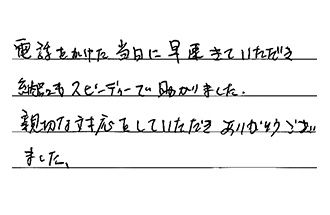 電話をかけた当日に早速きていただき
納品もスピーディーで助かりました。
親切な対応をしていただきありがとうござい
ました。